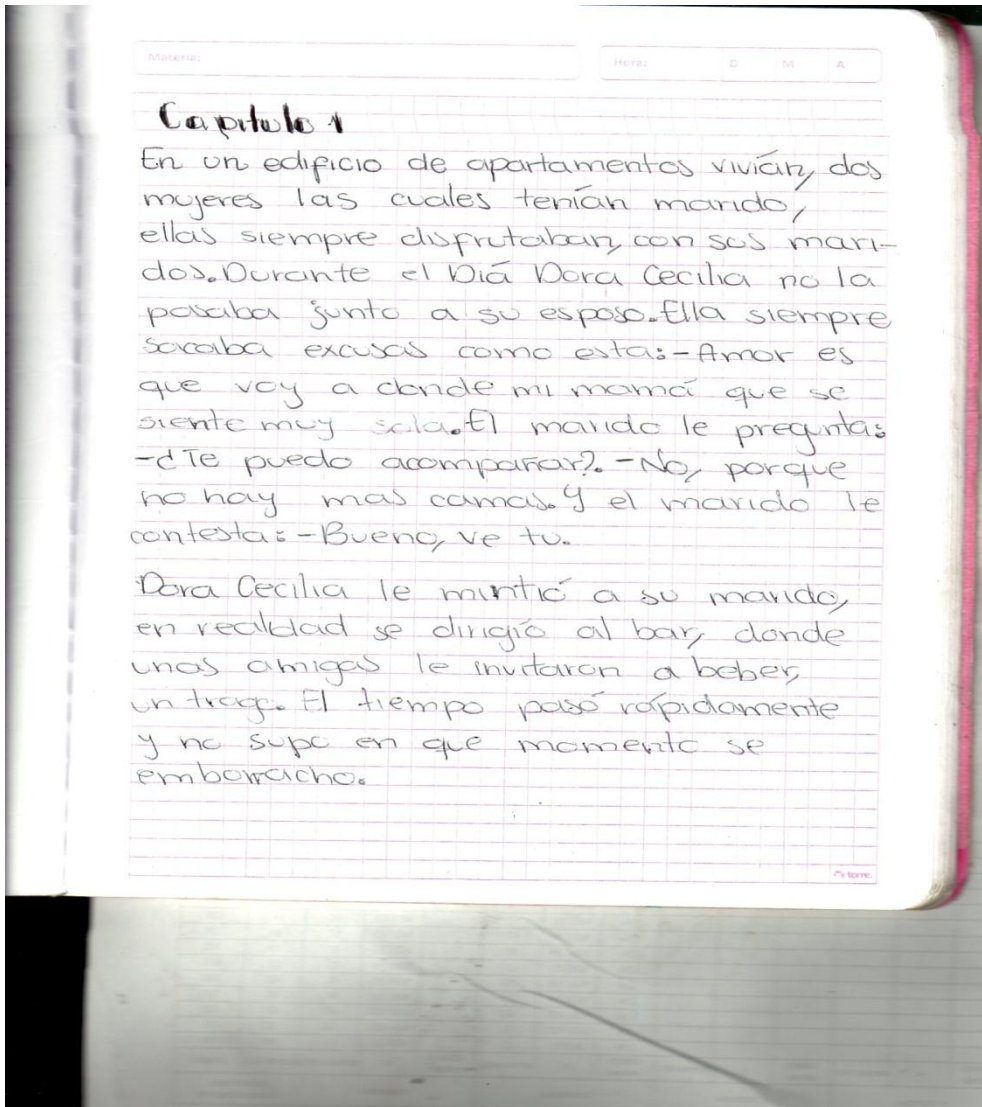 Materia:
Hora: D M A
Capitulo 1
En un edificio de apartamentos vivían, dos
mujeres las cuales tenían marido,
ellas siempre disfrutaban, con sus mari-
dos. Durante el Diá Dora Cecilia no la
pasaba junto a su esposo. Ella siempre
sacaba excusas como esta: -Amor es
que voy a donde mi mamá que se
siente muy sola. El marido le pregunta:
-¿Te puedo acompañar?. -No, porque
no hay mas camas. Y el marido le
contesta: -Bueno, ve tu.
Dora Cecilia le mintió a su marido,
en realidad se dirigió al bar, donde
unas amigas le invitaron a beber,
un trago. El tiempo pasó rápidamente
y no supo en que momento se
emborracho.
torre.